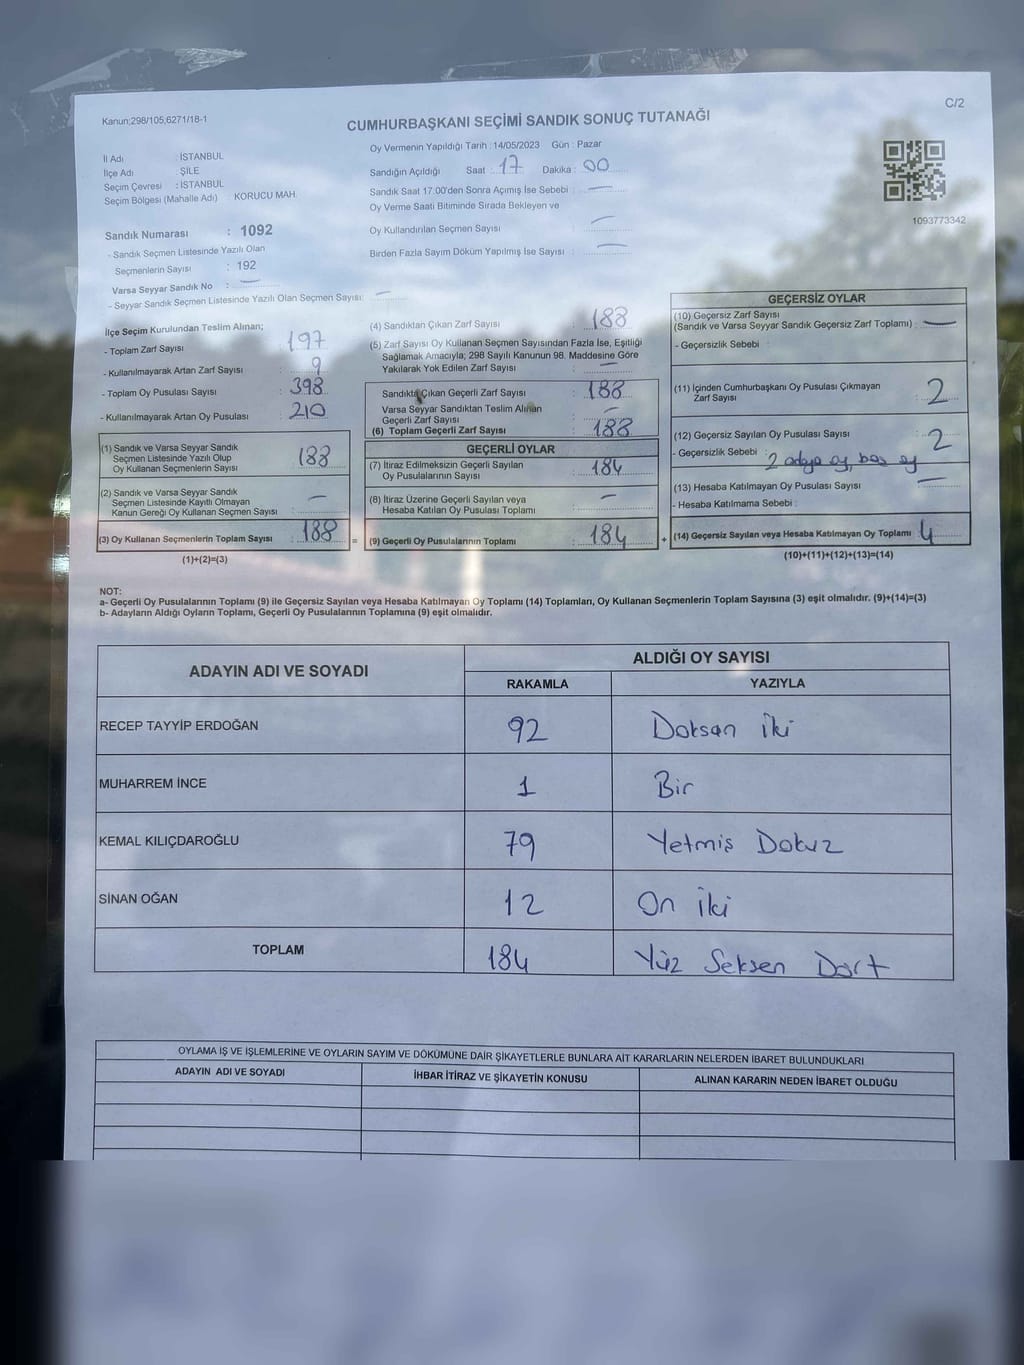 Kanun;298/105,6271/18-1
C/2
CUMHURBAŞKANI SEÇİMİ SANDIK SONUÇ TUTANAĞI
İl Adı : İSTANBUL
İlçe Adı : ŞİLE
Seçim Çevresi : İSTANBUL
Seçim Bölgesi (Mahalle Adı) KORUCU MAH.
Sandık Numarası : 1092
- Sandık Seçmen Listesinde Yazılı Olan
Seçmenlerin Sayısı : 192
Varsa Seyyar Sandık No : —
- Seyyar Sandık Seçmen Listesinde Yazılı Olan Seçmen Sayısı: —
Oy Vermenin Yapıldığı Tarih : 14/05/2023 Gün : Pazar
Sandığın Açıldığı Saat : 17 Dakika : 00
Sandık Saat 17:00'den Sonra Açımış İse Sebebi : —
Oy Verme Saati Bitiminde Sırada Bekleyen ve
Oy Kullandırılan Seçmen Sayısı : —
Birden Fazla Sayım Döküm Yapılmış İse Sayısı : —
1093773342
İlçe Seçim Kurulundan Teslim Alınan;
- Toplam Zarf Sayısı : 197
- Kullanılmayarak Artan Zarf Sayısı : 9
- Toplam Oy Pusulası Sayısı : 398
- Kullanılmayarak Artan Oy Pusulası : 210
(1) Sandık ve Varsa Seyyar Sandık
Seçmen Listesinde Yazılı Olup
Oy Kullanan Seçmenlerin Sayısı : 188
(2) Sandık ve Varsa Seyyar Sandık
Seçmen Listesinde Kayıtlı Olmayan
Kanun Gereği Oy Kullanan Seçmen Sayısı : —
(3) Oy Kullanan Seçmenlerin Toplam Sayısı : 188 =
(1)+(2)=(3)
(4) Sandıktan Çıkan Zarf Sayısı : 188
(5) Zarf Sayısı Oy Kullanan Seçmen Sayısından Fazla İse, Eşitliği
Sağlamak Amacıyla; 298 Sayılı Kanunun 98. Maddesine Göre
Yakılarak Yok Edilen Zarf Sayısı : —
Sandıktan Çıkan Geçerli Zarf Sayısı : 188
Varsa Seyyar Sandıktan Teslim Alınan
Geçerli Zarf Sayısı : —
(6) Toplam Geçerli Zarf Sayısı : 188
GEÇERLİ OYLAR
(7) İtiraz Edilmeksizin Geçerli Sayılan
Oy Pusulalarının Sayısı : 184
(8) İtiraz Üzerine Geçerli Sayılan veya
Hesaba Katılan Oy Pusulası Toplamı : —
(9) Geçerli Oy Pusulalarının Toplamı : 184 +
GEÇERSİZ OYLAR
(10) Geçersiz Zarf Sayısı
(Sandık ve Varsa Seyyar Sandık Geçersiz Zarf Toplamı) : —
- Geçersizlik Sebebi :
(11) İçinden Cumhurbaşkanı Oy Pusulası Çıkmayan
Zarf Sayısı : 2
(12) Geçersiz Sayılan Oy Pusulası Sayısı : 2
- Geçersizlik Sebebi : 2 adaya oy, boş oy
(13) Hesaba Katılmayan Oy Pusulası Sayısı : —
- Hesaba Katılmama Sebebi :
(14) Geçersiz Sayılan veya Hesaba Katılmayan Oy Toplamı : 4
(10)+(11)+(12)+(13)=(14)
NOT:
a- Geçerli Oy Pusulalarının Toplamı (9) ile Geçersiz Sayılan veya Hesaba Katılmayan Oy Toplamı (14) Toplamları, Oy Kullanan Seçmenlerin Toplam Sayısına (3) eşit olmalıdır. (9)+(14)=(3)
b- Adayların Aldığı Oyların Toplamı, Geçerli Oy Pusulalarının Toplamına (9) eşit olmalıdır.
ADAYIN ADI VE SOYADI ALDIĞI OY SAYISI
RAKAMLA YAZIYLA
RECEP TAYYİP ERDOĞAN 92 Doksan iki
MUHARREM İNCE 1 Bir
KEMAL KILIÇDAROĞLU 79 Yetmiş Dokuz
SİNAN OĞAN 12 On iki
TOPLAM 184 Yüz Seksen Dört
OYLAMA İŞ VE İŞLEMLERİNE VE OYLARIN SAYIM VE DÖKÜMÜNE DAİR ŞİKAYETLERLE BUNLARA AİT KARARLARIN NELERDEN İBARET BULUNDUKLARI
ADAYIN ADI VE SOYADI İHBAR İTİRAZ VE ŞİKAYETİN KONUSU ALINAN KARARIN NEDEN İBARET OLDUĞU